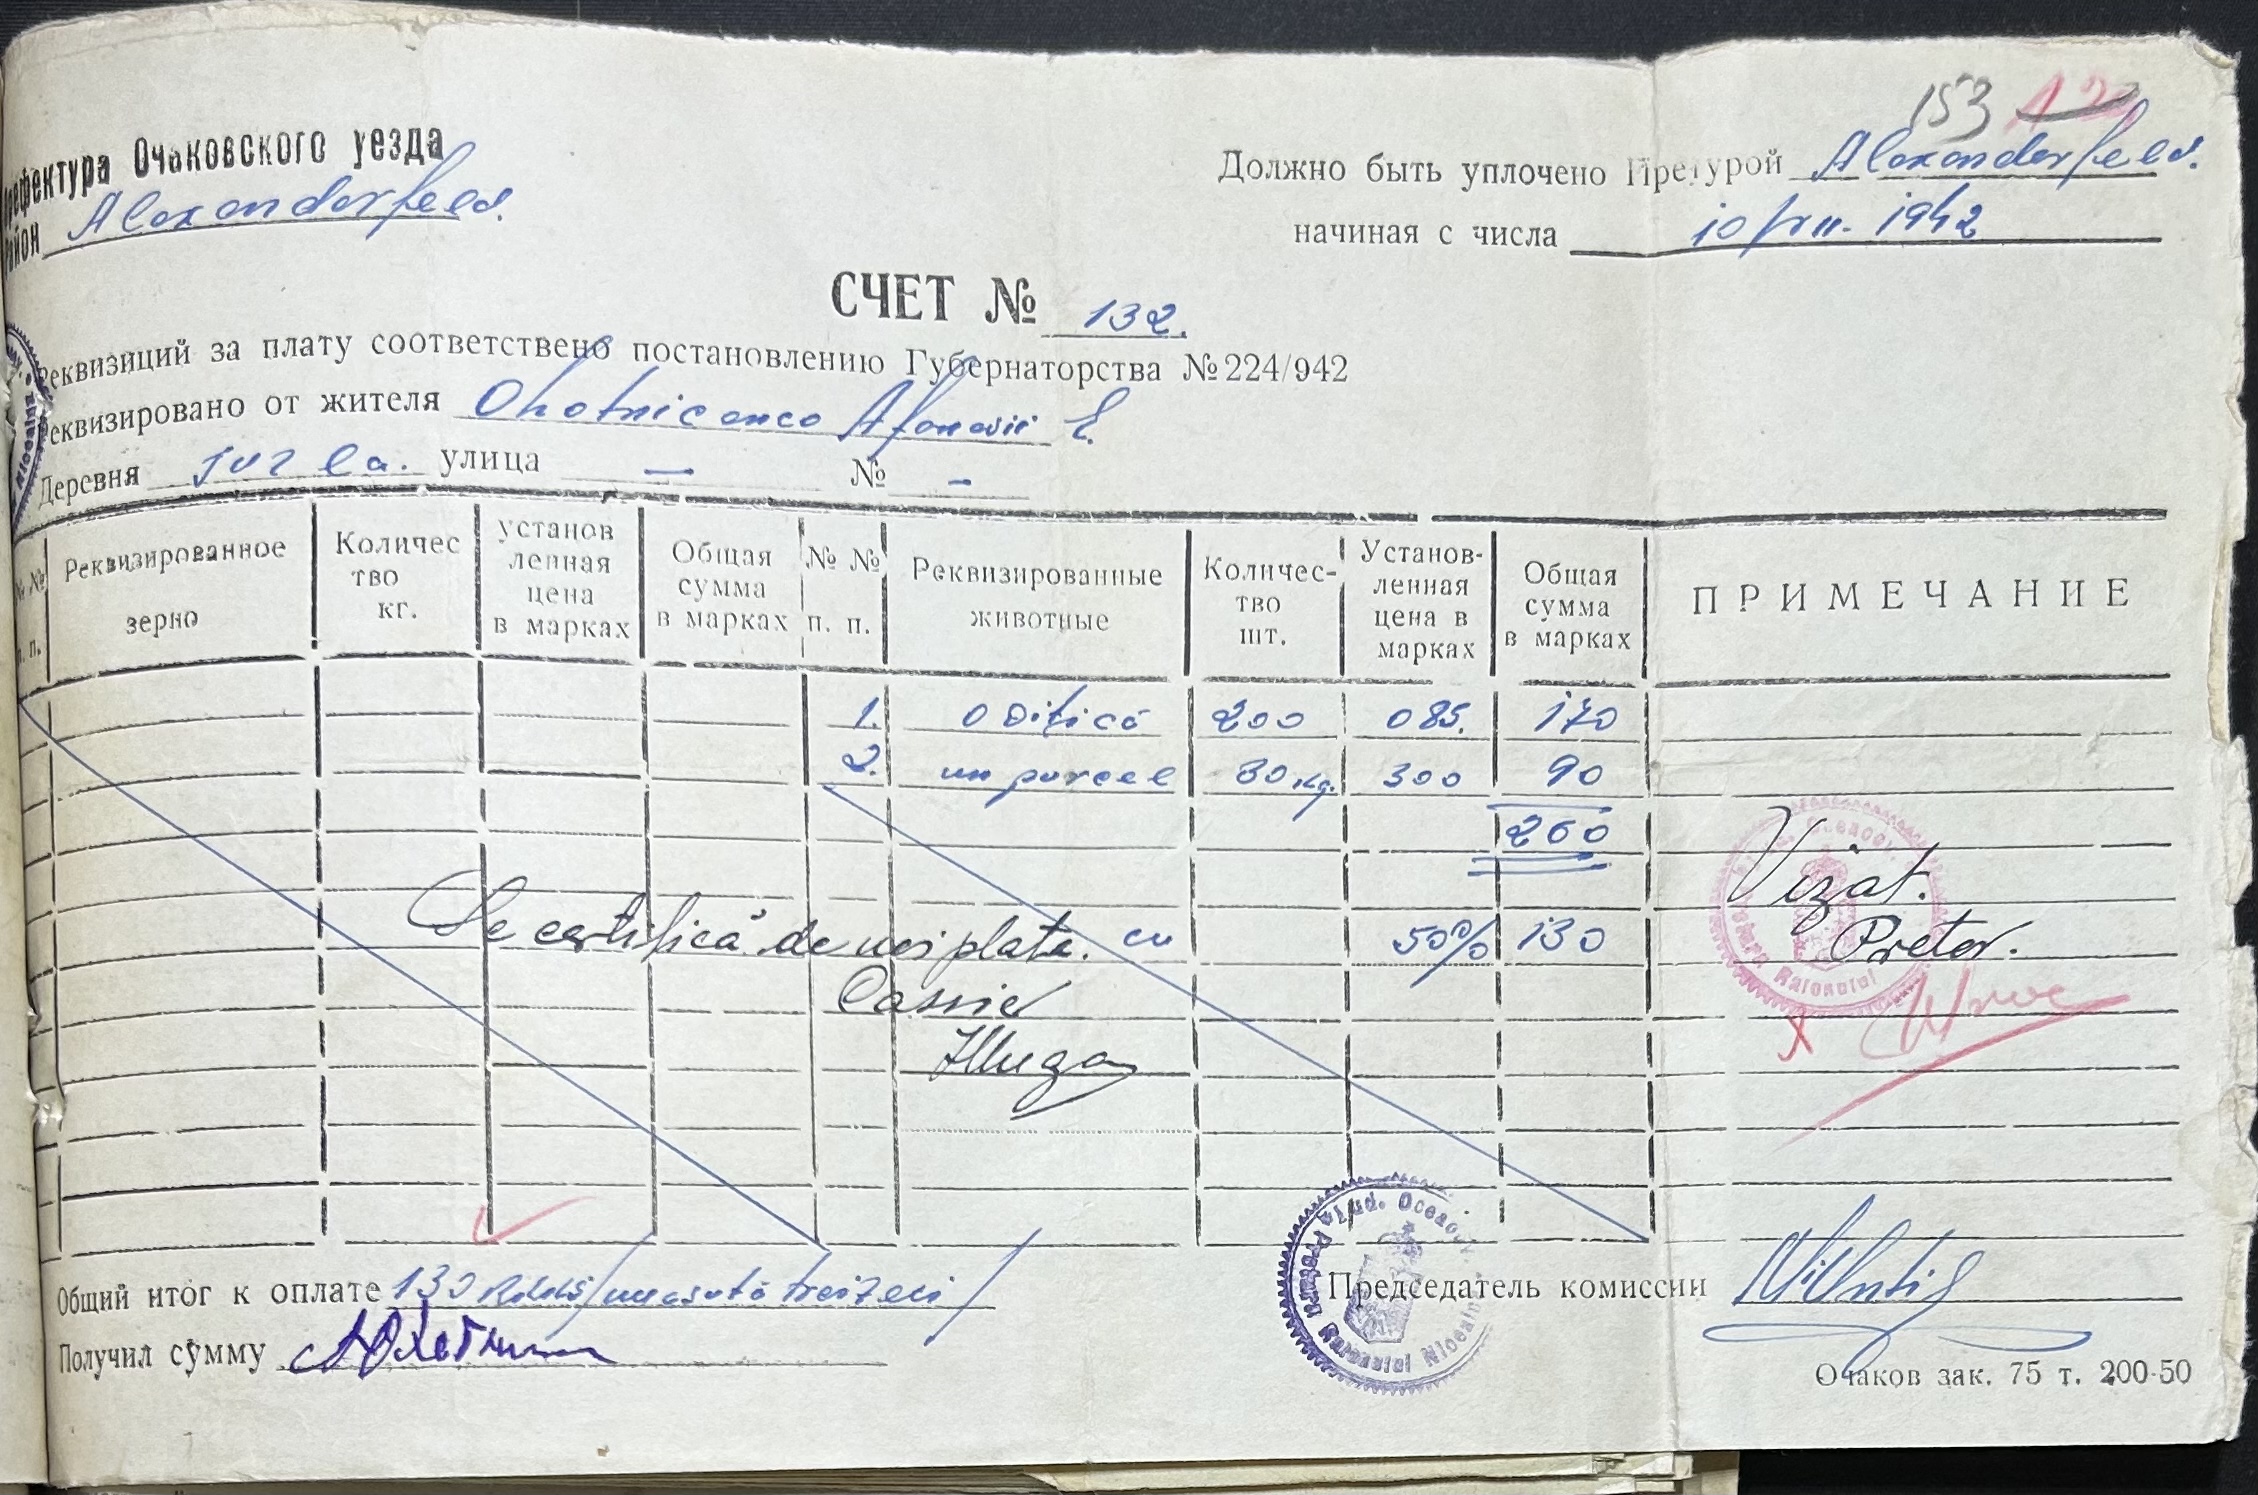 153
Префектура Очаковского уезда
Район Alexanderfeld.
Должно быть уплочено Претурой Alexanderfeld.
начиная с числа 10/VII. 1942
СЧЕТ № 132.
Реквизиций за плату соответствено постановлению Губернаторства №224/942
Реквизировано от жителя Ohotnicenco Afanasii E.
Деревня улица — № -
№ № п. п. Реквизированное зерно Количество кг. установленная цена в марках Общая сумма в марках № № п. п. Реквизированные животные Количес-тво шт. Установ-ленная цена в марках Общая сумма в марках ПРИМЕЧАНИЕ
1. o vitică 200 085. 170
2. un purcel 30 kg. 300 90
260
Vizat.
Se certifică de noi plata. cu 50% 130
Pretor.
Casier
Общий итог к оплате 130 RKKS /una sută treizeci/
Председатель комиссии
Получил сумму
Очаков зак. 75 т. 200-50